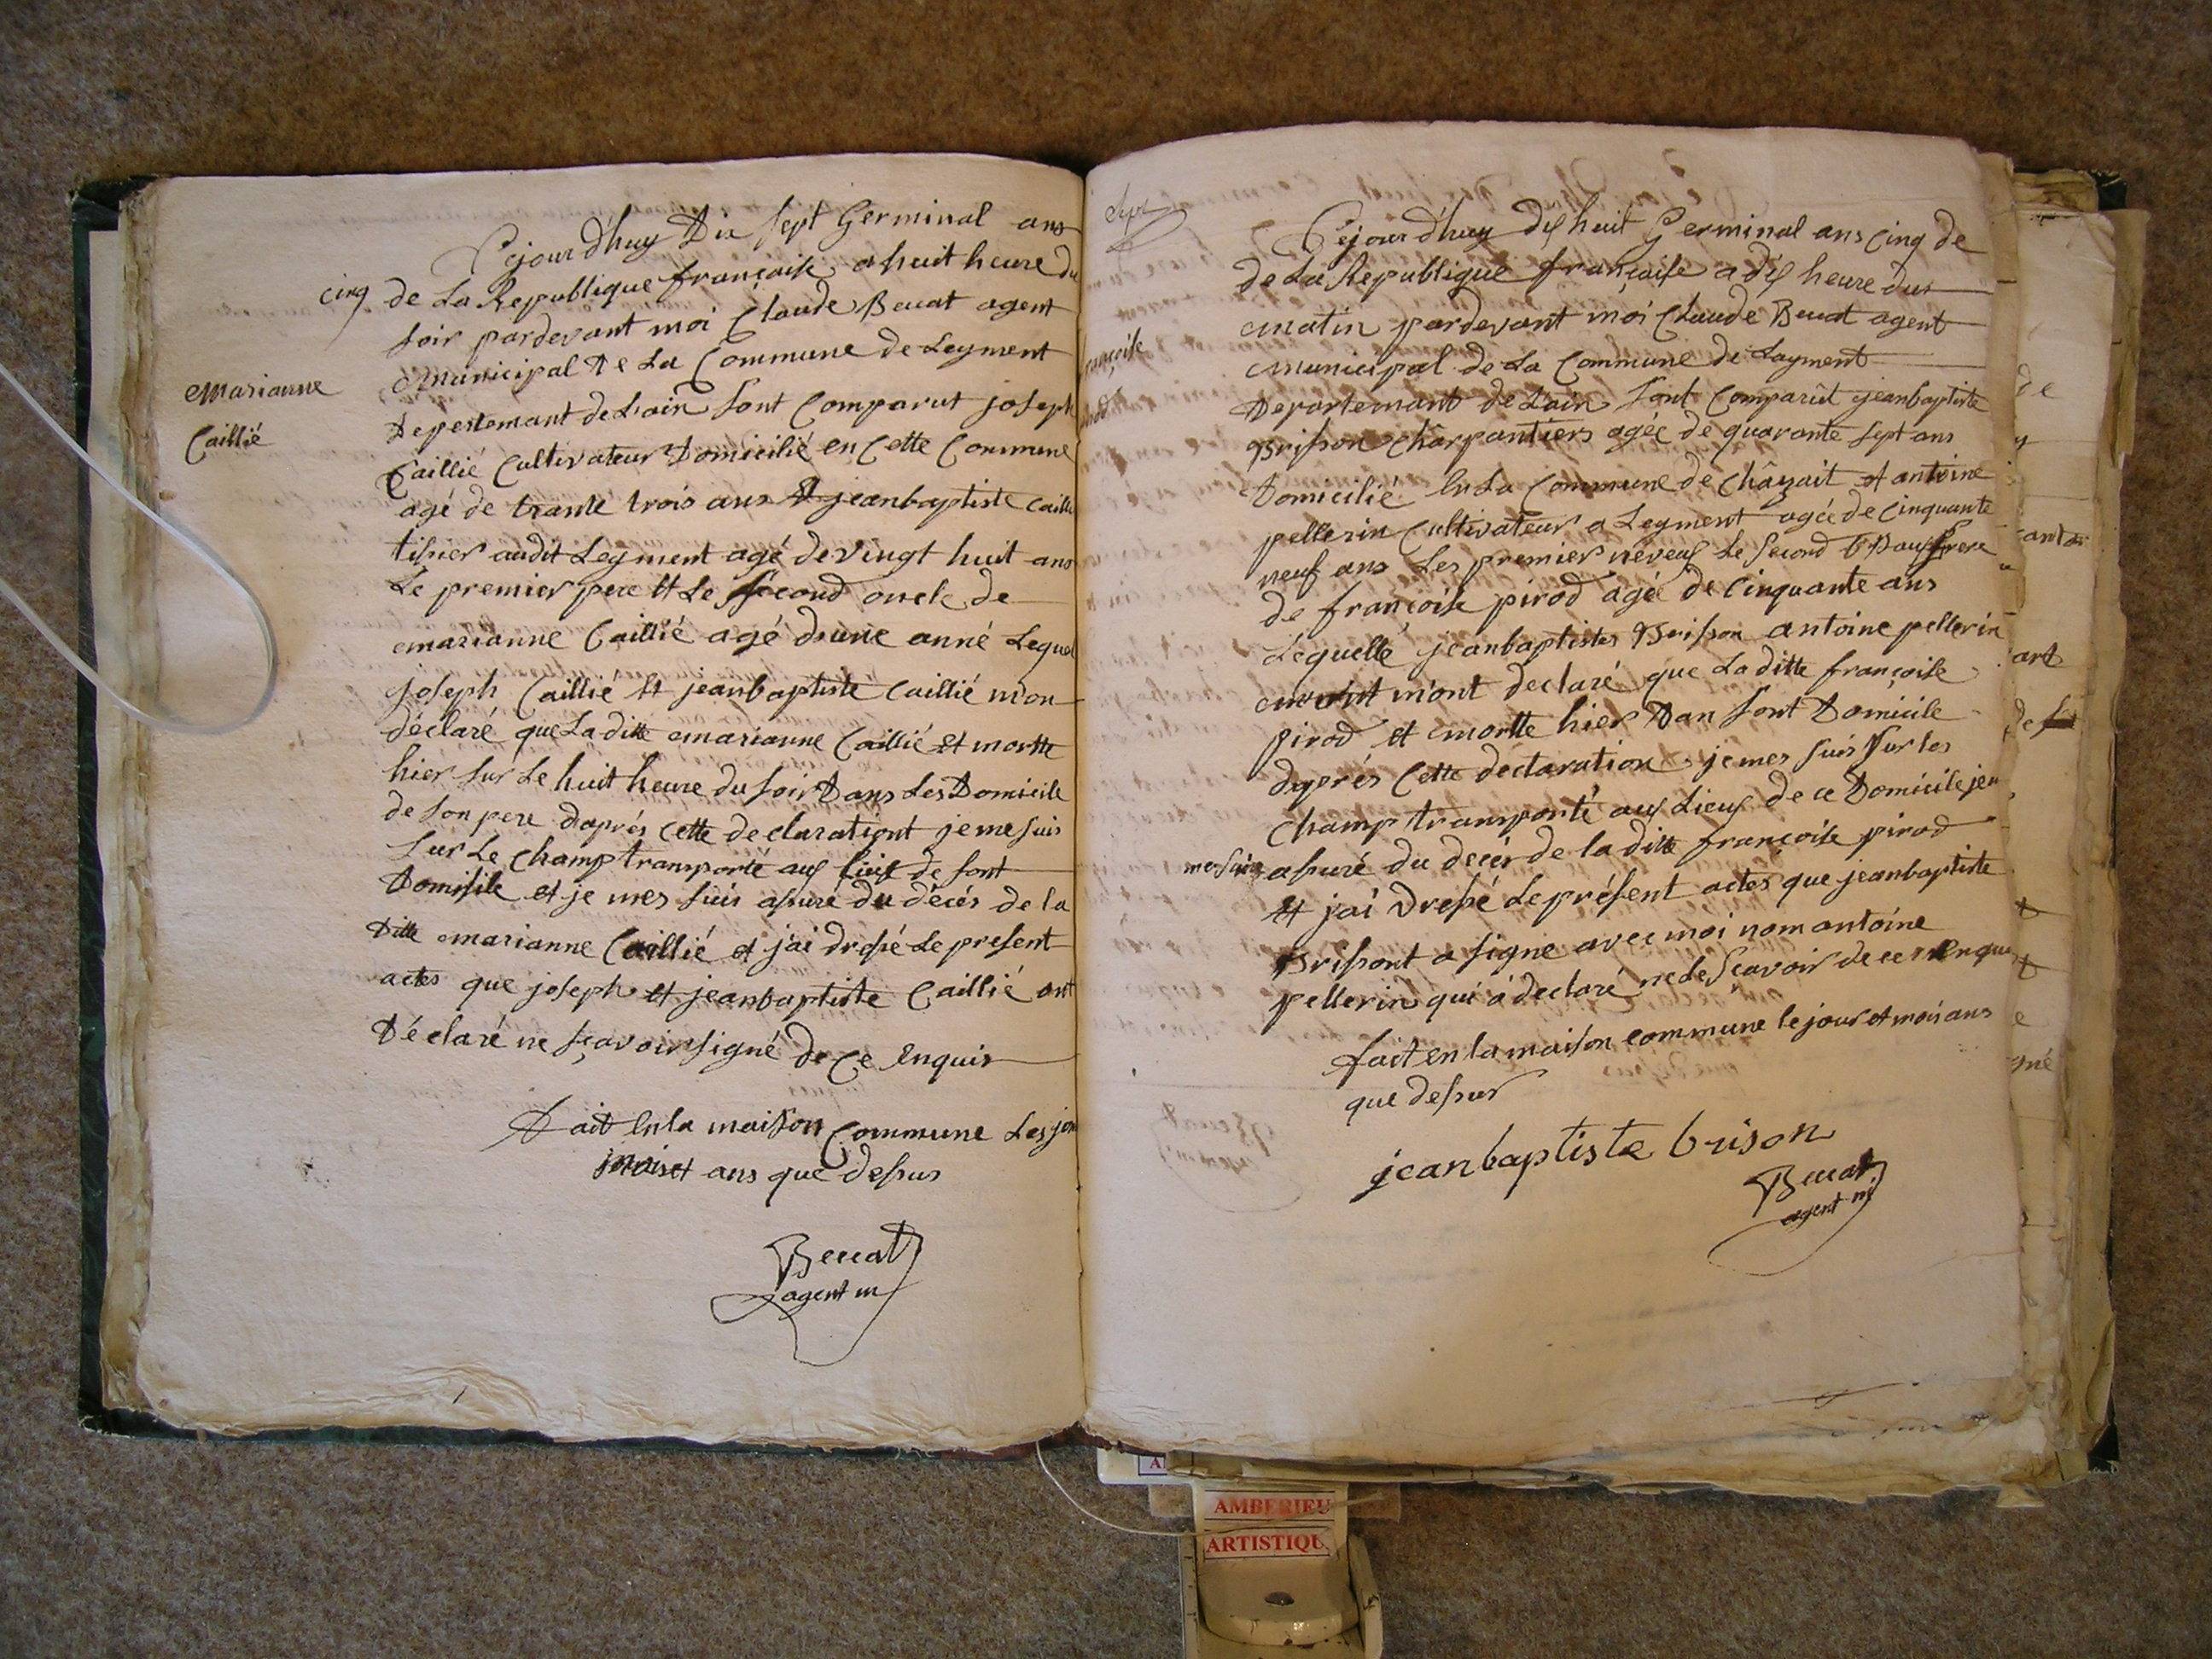 Cejourdhuy Dix sept Germinal ans
cinq de La Republique françoise a huit heure du
soir pardevant moi Claude Beuat agent
municipal De La Commune de Leyment
Marianne
Caillié
Depertemant de Lain sont Comparut joseph
Caillié Cultivateur Domicilié en Cette Commune
agé de trante trois ans Et jeanbaptiste Caillié
tissier audit Leyment agé de vingt huit ans
Le premier pere Et Le second oncle de
marianne Caillié agé dune anné Lequel
joseph Caillié Et jeanbaptiste Caillié mon
déclaré que La ditte marianne Caillié et mortte
hier sur Le huit heure du soir Dans Les Domicile
de son pere daprés Cette declarationt je me suis
sur Le Champ transporté aux lieux de sont
Domisile et je mes suis assuré du décés de la
ditte marianne Caillié et j'ai dressé Le present
actes que joseph et jeanbaptiste Caillié ont
Déclaré ne sçavoir signé de Ce Enquis
Fait En la maison Commune Les jou
mois et ans que dessus
Beuat
agent m
Sept
Cejourdhuy dix huit Germinal ans Cinq de
de La Republique françoise a dix heure dus
matin pardevant moi Claude Beuat agent
françoise
pirod
municipal de La Commune de Layment
Departemant de Lain sont Comparût jeanbaptiste
Brisson Chârpantiers agée de quarante sept ans
Domicilié En La Commune de Châzait et antoine
pellerin Cultivateur a Leyment agée de Cinquante
neuf ans Les premier neveux Le second Baufrere
de françoise pirod agée de Cinquante ans
Lequelle jeanbaptistes Brisson antoine pellerin
m'ont declaré que La ditte françoise
pirod et mortte hier Dan sont Domicile
daprés Cette déclaration je mes suis sur les
Champ transporté aux Lieux de ce Domicile jeu
me suis assuré du decér de la ditte françoise pirod
Et j'ai dressé Le présent actes que jeanbaptiste
Brissont a signé avec moi nom antoine
pellerin qui á declaré ne le sçavoir de ce Enquis
fait en la maison commune le jour et mois ans
que dessus
jeanbaptiste brison
Beuat
agent m
AMBERIEU
ARTISTIQU